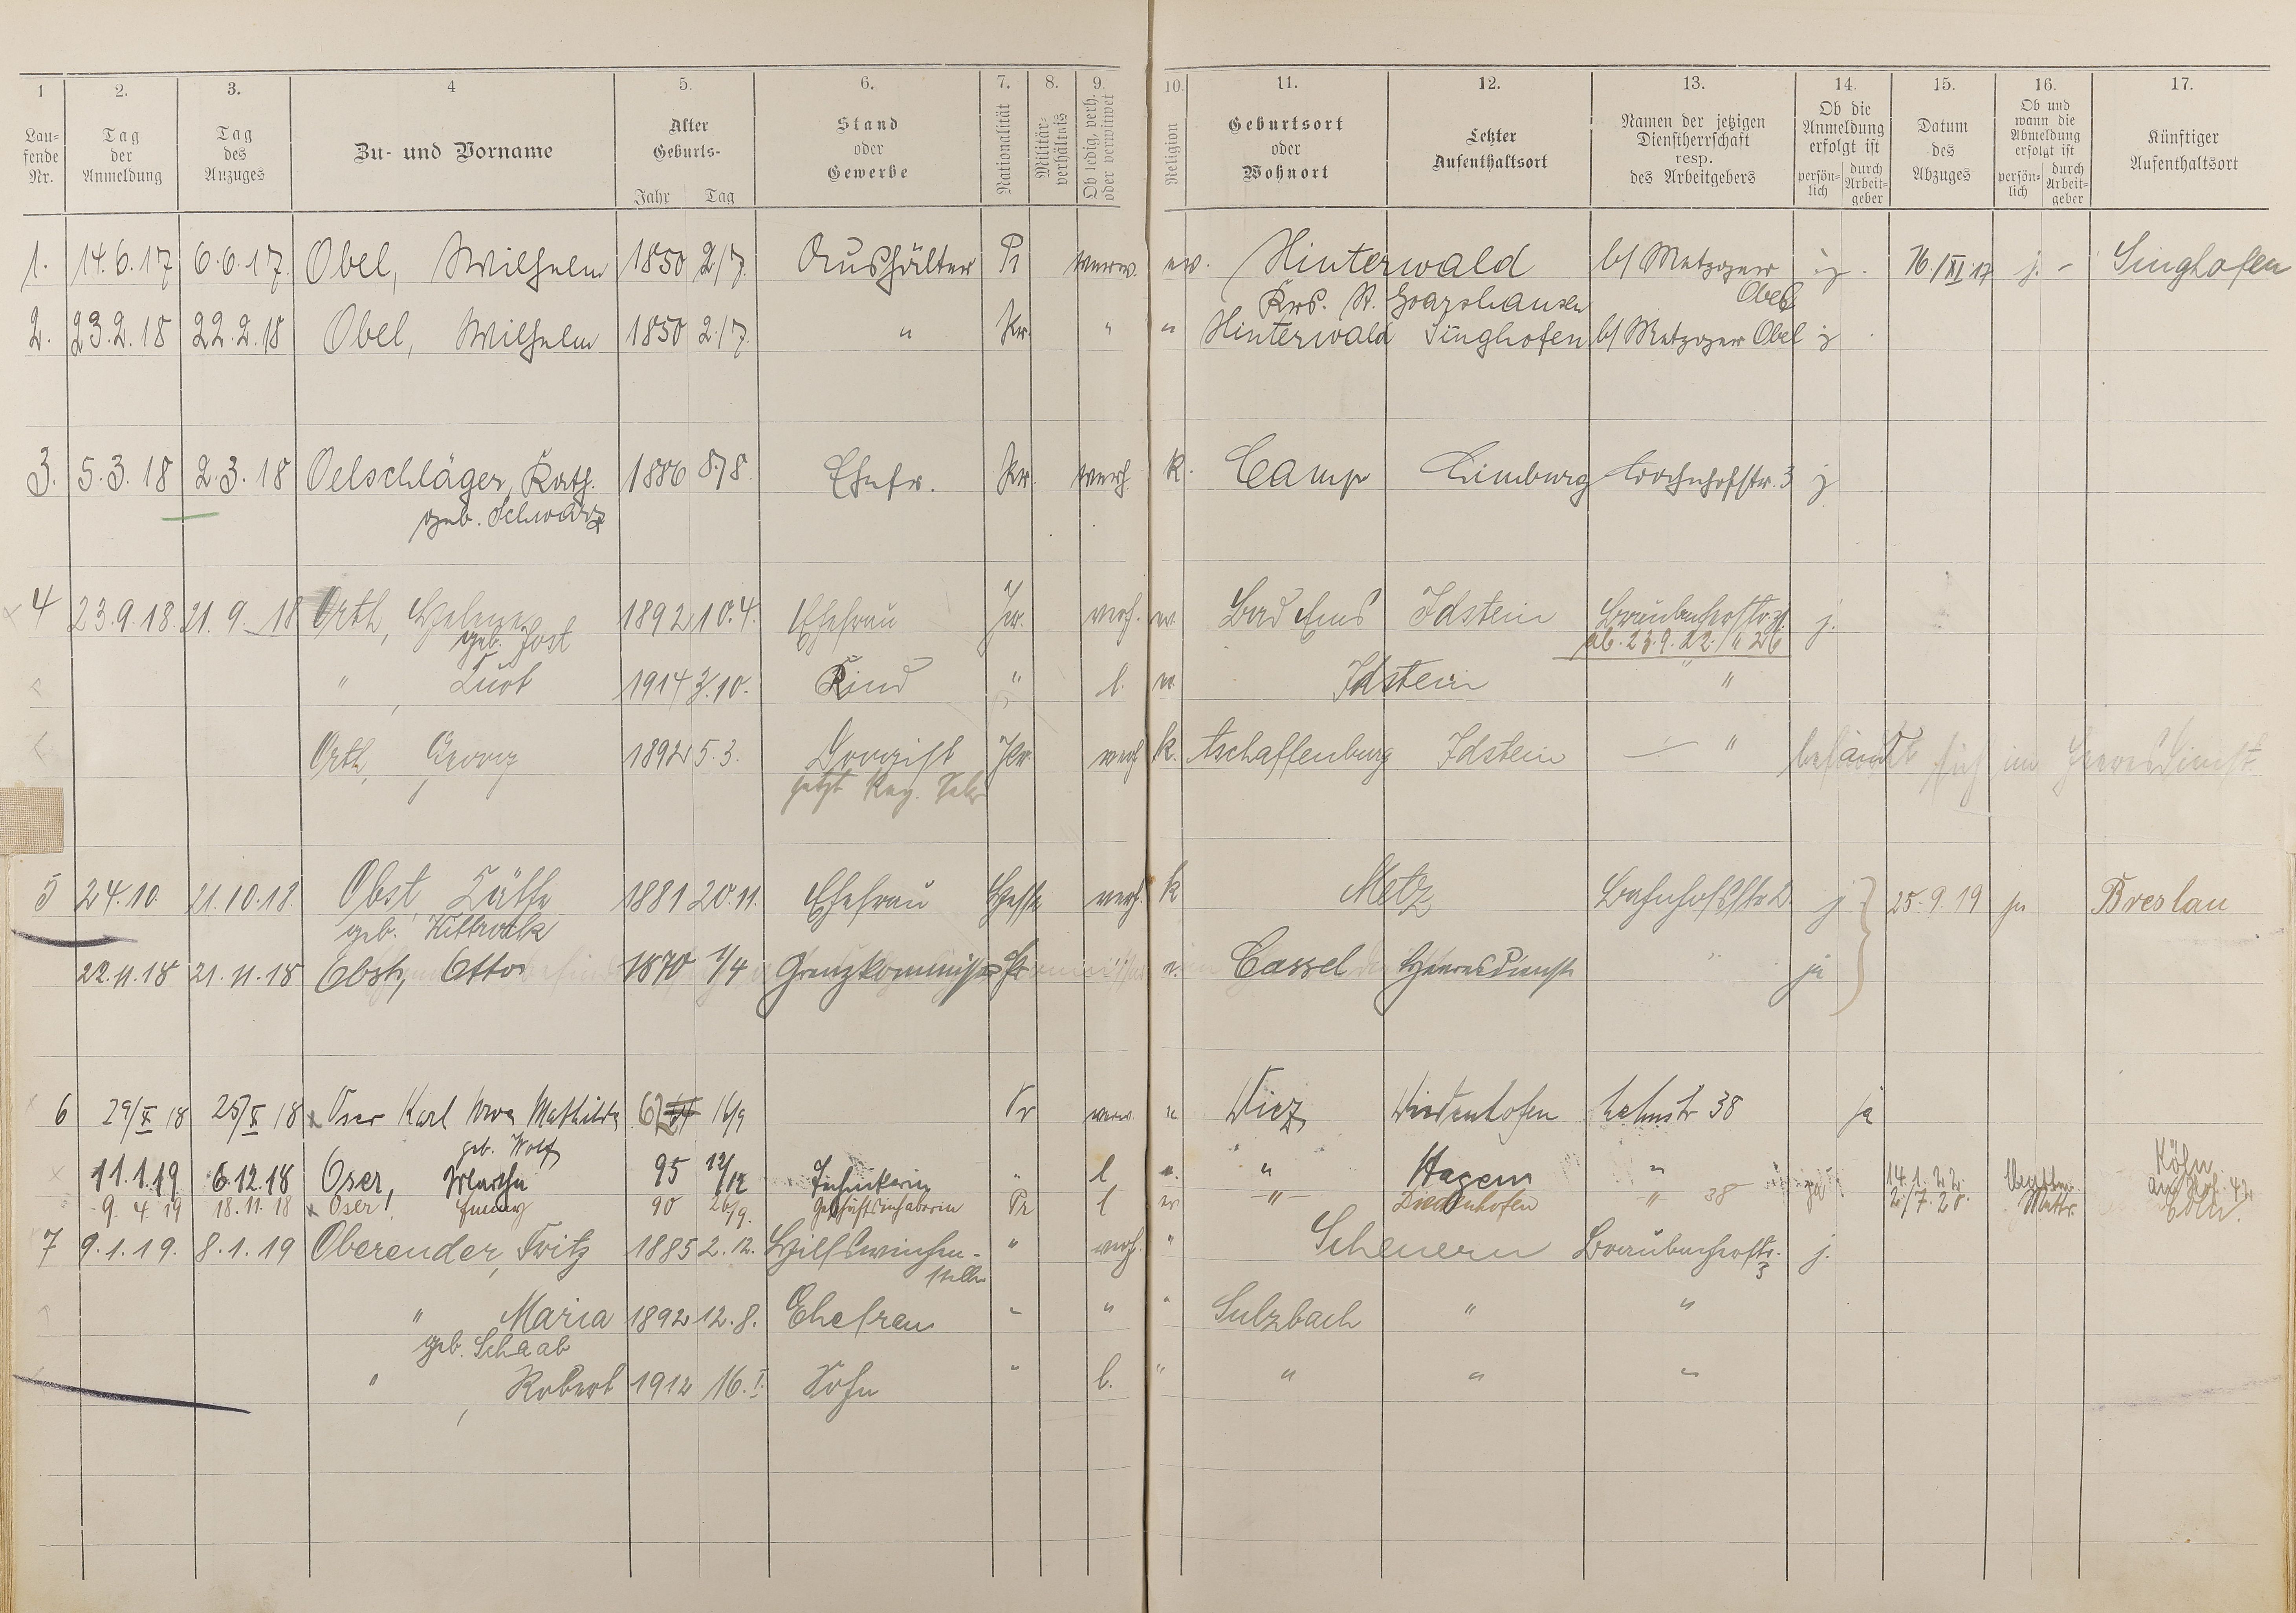 1 2. 3. 4 5. 6. 7. 8. 9. 10. 11. 12. 13. 14. 15. 16. 17.
Lau-
fende
Nr.
Tag
der
Anmeldung
Tag
des
Anzuges
Zu- und Vorname
Alter
Geburts-
Jahr Tag
Stand
oder
Gewerbe
Nationalität
Militär-
verhältnis
Ob ledig, verh.
oder verwitwet
Religion
Geburtsort
oder
Wohnort
Letzter
Aufenthaltsort
Namen der jetzigen
Dienstherrschaft
resp.
des Arbeitgebers
Ob die
Anmeldung
erfolgt ist
persön-
lich
durch
Arbeit-
geber
Datum
des
Abzuges
Ob und
wann die
Abmeldung
erfolgt ist
persön-
lich
durch
Arbeit-
geber
Künftiger
Aufenthaltsort
1. 14.6.17 6.6.17. Obel, Wilhelm 1850 2/7. Aushälter Pr verw. ev. Hinterwald b/ Metzger j. 16./XI.17 j. - Singhofen
Krs. St. Goarshausen Obel
2. 23.2.18 22.2.18 Obel, Wilhelm 1850 2/7. " Pr. " " Hinterwald Singhofen b/ Metzger Obel j
3. 5.3.18 2.3.18 Oelschläger, Kath. 1886 8/8. Ehefr. Pr. verh. k. Camp Limburg Bahnhofstr. 3 j
geb. Schwarz
4 23.9.18. 21.9.18 Orth, Helene 1892 10.4. Ehefrau Pr. verh. ev Bad Ems Idstein j.
geb. Jost ab. 23.9.22. " 26
" , Kurt 1914 3.10. Kind " l. ev. Idstein "
Orth, Georg 1892 5.3. Drogist Pr. verh k. Aschaffenburg Idstein — " befindet sich im Heeresdienst
jetzt Reg. Sekr
5 24.10. 21.10.18. Obst, Käthe 1881 20.11. Ehefrau Hesse verh. k Metz Bahnhofstr. j 25.9.19 ja Breslau
geb.
22.11.18 21.11.18 Obst, Otto 1870 1/4 Grenzkommissar Pr e. Cassel Heeresdienst " ja
6 29/X 18 25/X 18 x Oser Karl Wwe Mathilde 62 16/9 Pr verw. e Diez Diedenhofen Lahnstr 38 ja
geb. Wolf
11.1.19 6.12.18 Oser, Martha 95 12/12 Technikerin " l e. " Hagen " 14.1.22. Köln
9.4.19 18.11.18 x Oser, Emmy 90 26/9. Geschäftsinhaberin Pr l ev " Diedenhofen " 38 ja 2/7.20. Mutter Köln.
7 9.1.19. 8.1.19 Oberender, Fritz 1885 2.12. Hilfsweichen- " verh. " Scheuern j.
steller 3
" Maria 1892 12.8. Ehefrau " " " Sulzbach " "
geb. Schaab
" , Robert 1912 16.I. Sohn " l. " " " "